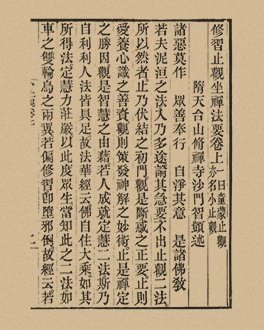 修習止觀坐禪法要卷上
一曰童蒙止觀
亦名小止觀
隋天台山修禪寺沙門智顗述
諸惡莫作　眾善奉行　自淨其意　是諸佛教
若夫泥洹之法入乃多途論其急要不出止觀二法
所以然者止乃伏結之初門觀是斷惑之正要止則
愛養心識之善資觀則策發神解之妙術止是禪定
之勝因觀是智慧之由藉若人成就定慧二法斯乃
自利利人法皆具足故法華經云佛自住大乘如其
所得法定慧力莊嚴以此度眾生當知此之二法如
車之雙輪鳥之兩翼若偏修習即墮邪倒故經云若